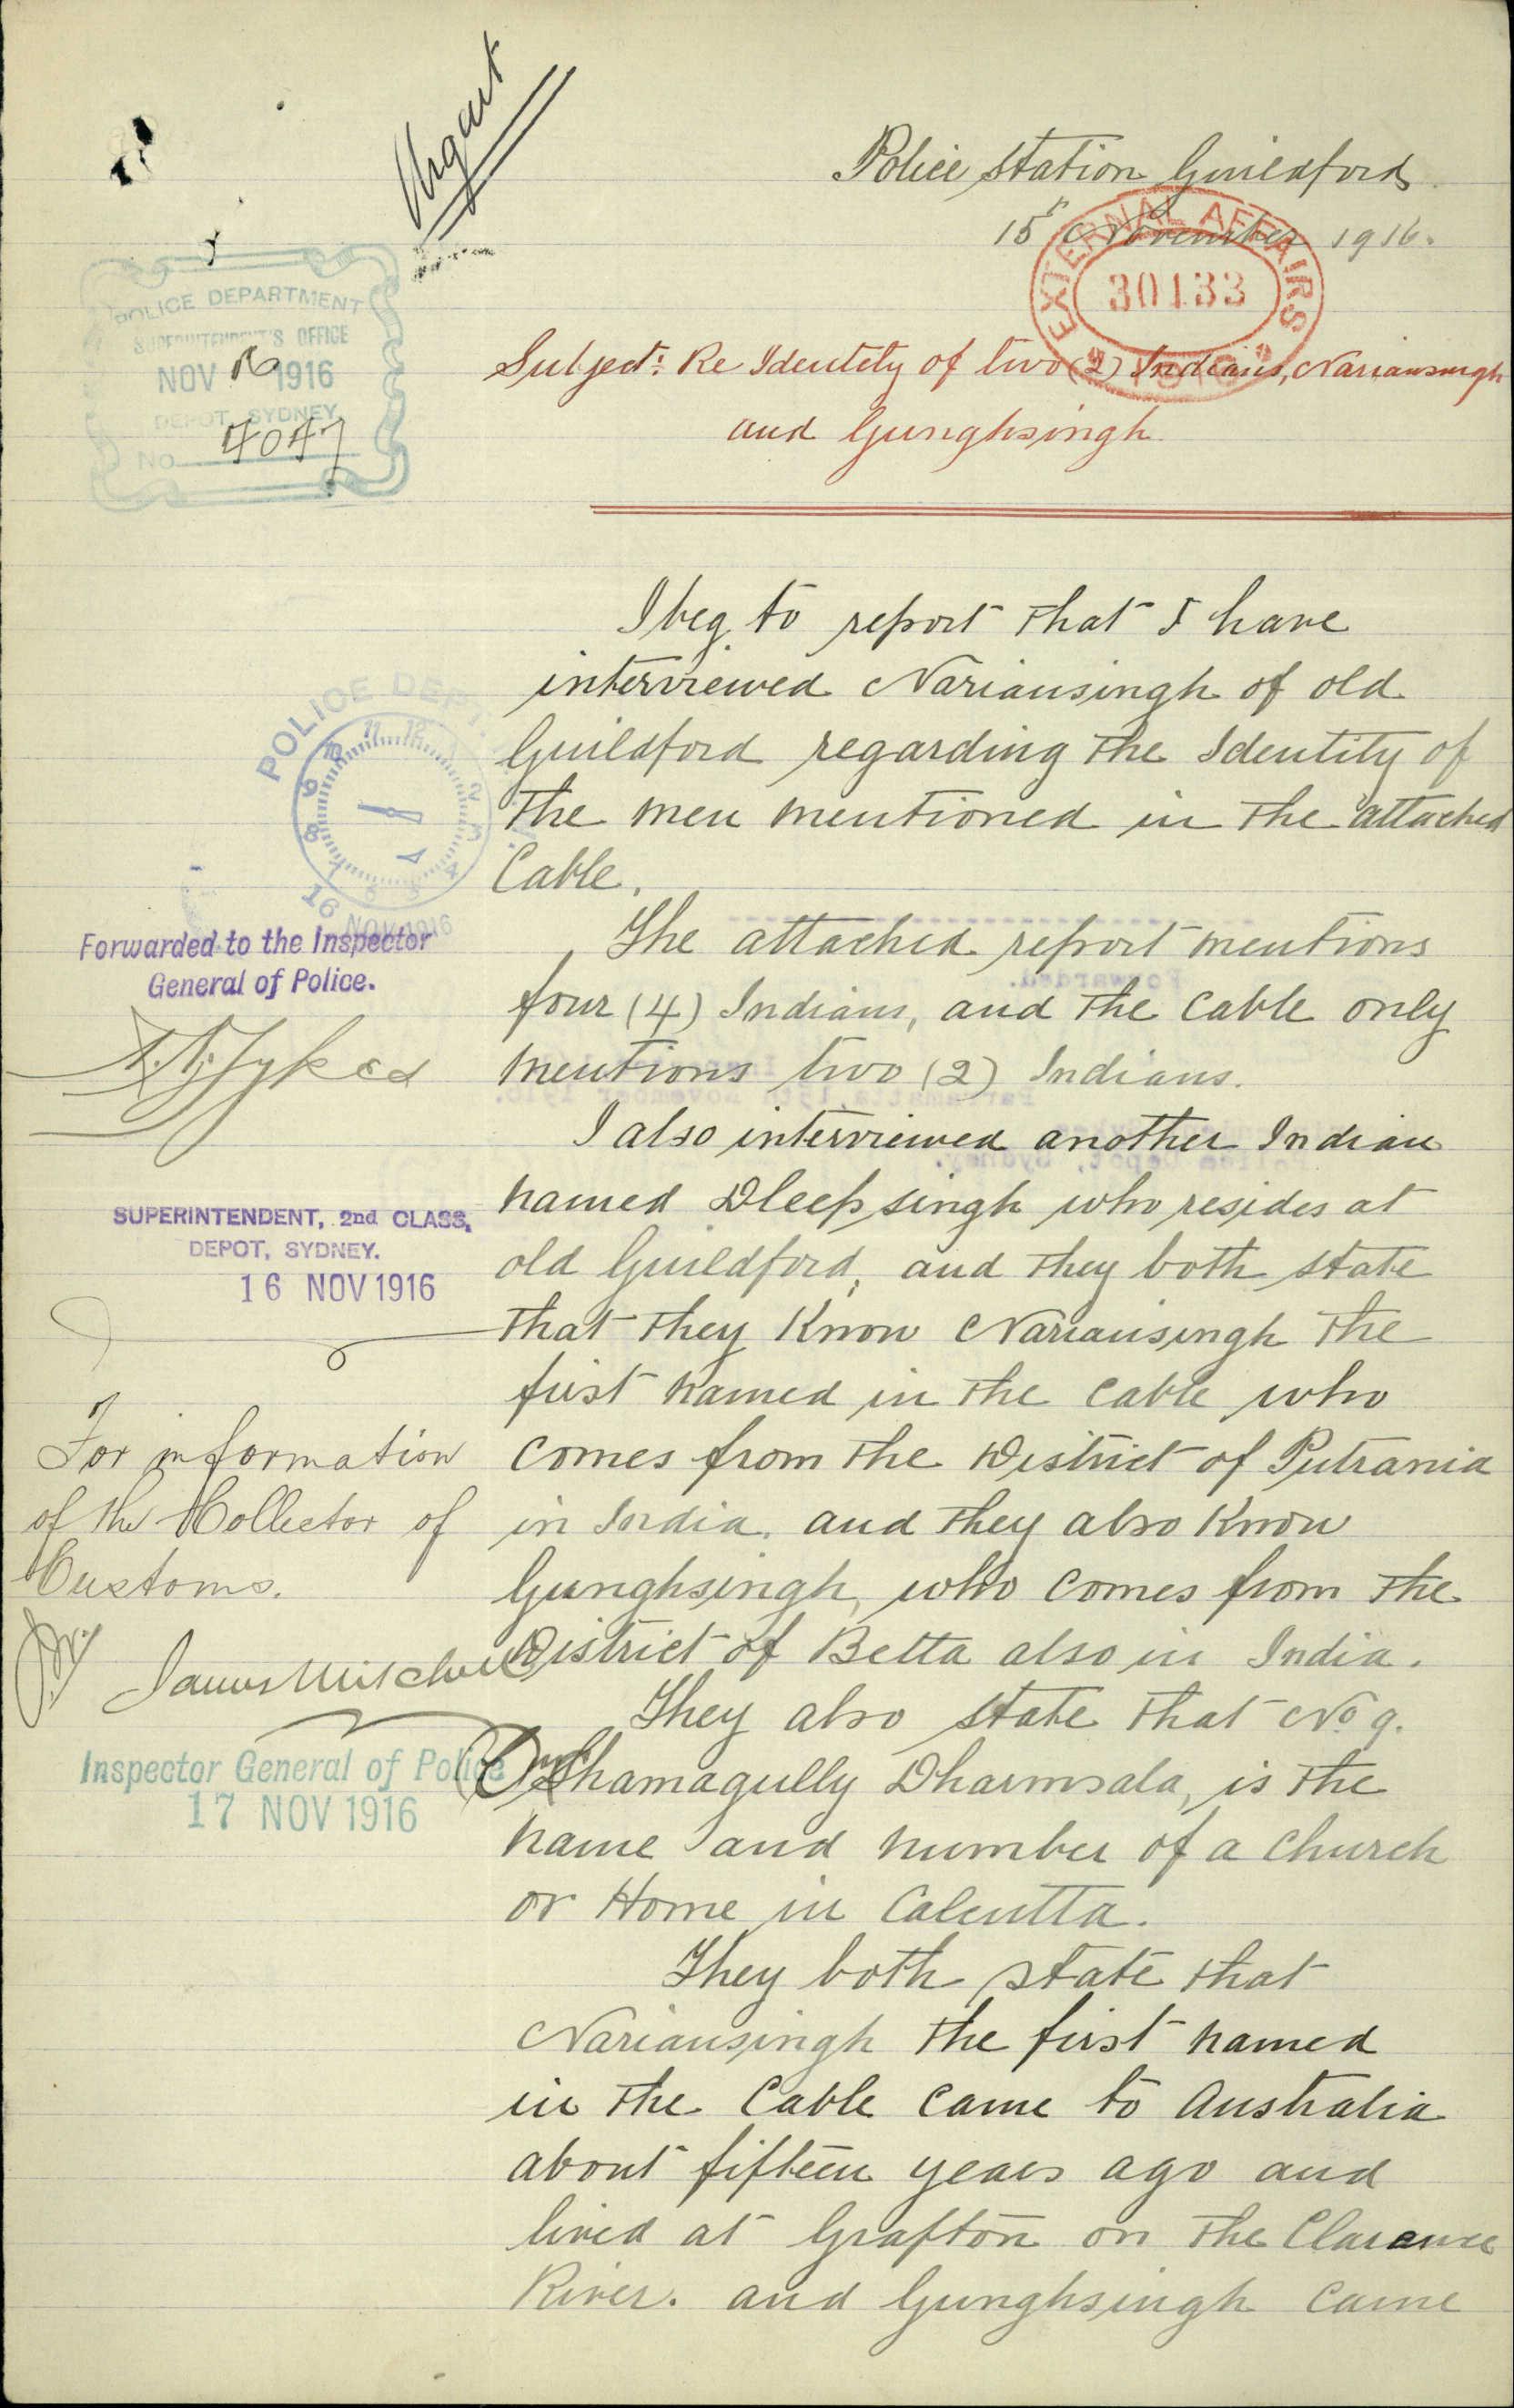 Urgent
Police Station Guildford
15th November 1916.
EXTERNAL AFFAIRS
30133
1916
POLICE DEPARTMENT
SUPERINTENDENT'S OFFICE
NOV 16 1916
DEPOT, SYDNEY
No 4047
Subject: Re Identity of two (2) Indians, Nariansingh
and Gunghsingh
I beg to report that I have
interviewed Nariansingh of old
Guildford regarding the Identity of
the men mentioned in the attached
Cable.
The attached report mentions
four (4) Indians, and the Cable only
mentions two (2) Indians.
I also interviewed another Indian
named Dleepsingh who resides at
old Guildford, and they both state
that they Know Nariansingh the
first named in the Cable who
comes from the District of Putrania
in India. and they also Know
Gunghsingh, who comes from the
District of Betta also in India.
They also state that No 9.
Shamagully Dharmsala, is the
name and number of a Church
or Home in Calcutta.
They both state that
Nariansingh the first named
in the Cable came to Australia
about fifteen years ago and
lived at Grafton on the Clarence
River. and Gunghsingh came
POLICE DEPT.
16 NOV 1916
Forwarded to the Inspector
General of Police.
SUPERINTENDENT, 2nd CLASS,
DEPOT, SYDNEY.
16 NOV 1916
For information
of the Collector of
Customs.
James Mitchell
Inspector General of Police
17 NOV 1916